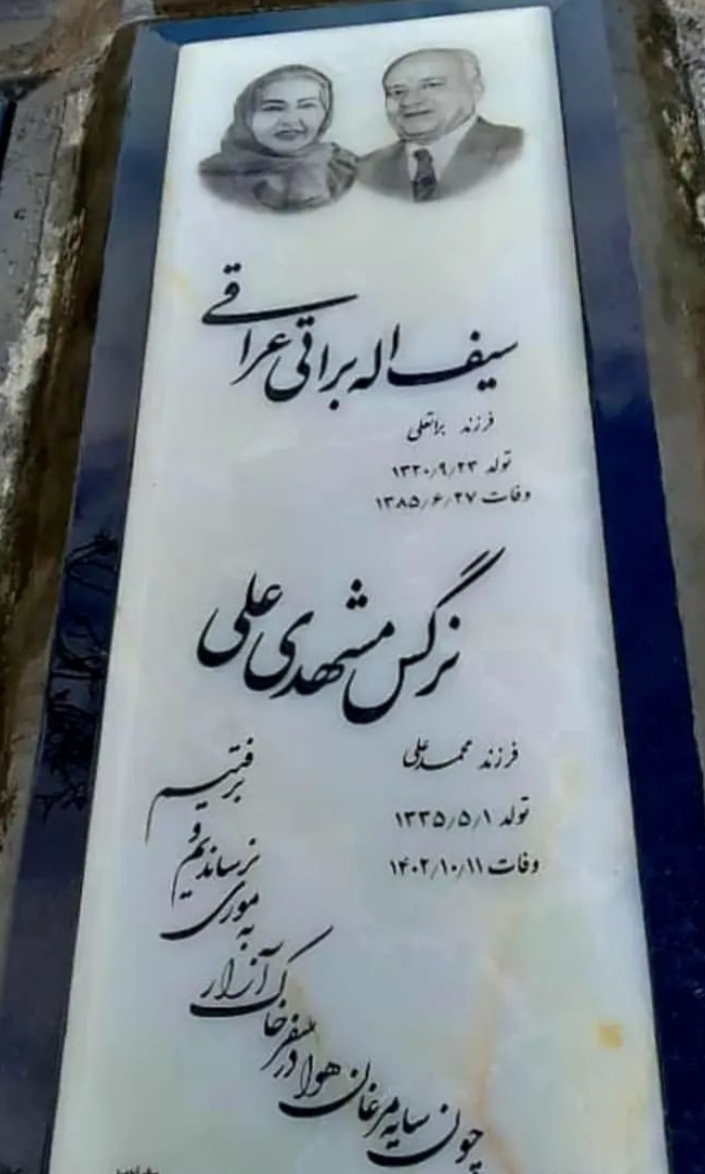 سیف اله براتی عراقی
فرزند براتعلی
تولد ۱۳۲۰/۹/۲۳
وفات ۱۳۸۵/۶/۲۷
نرگس مشهدی علی
فرزند محمدعلی
تولد ۱۳۳۵/۵/۱
وفات ۱۴۰۲/۱۰/۱۱
چون سایه مرغان هوا در سفر خاک آزار
به موری
نرساندیم
و
برفتیم